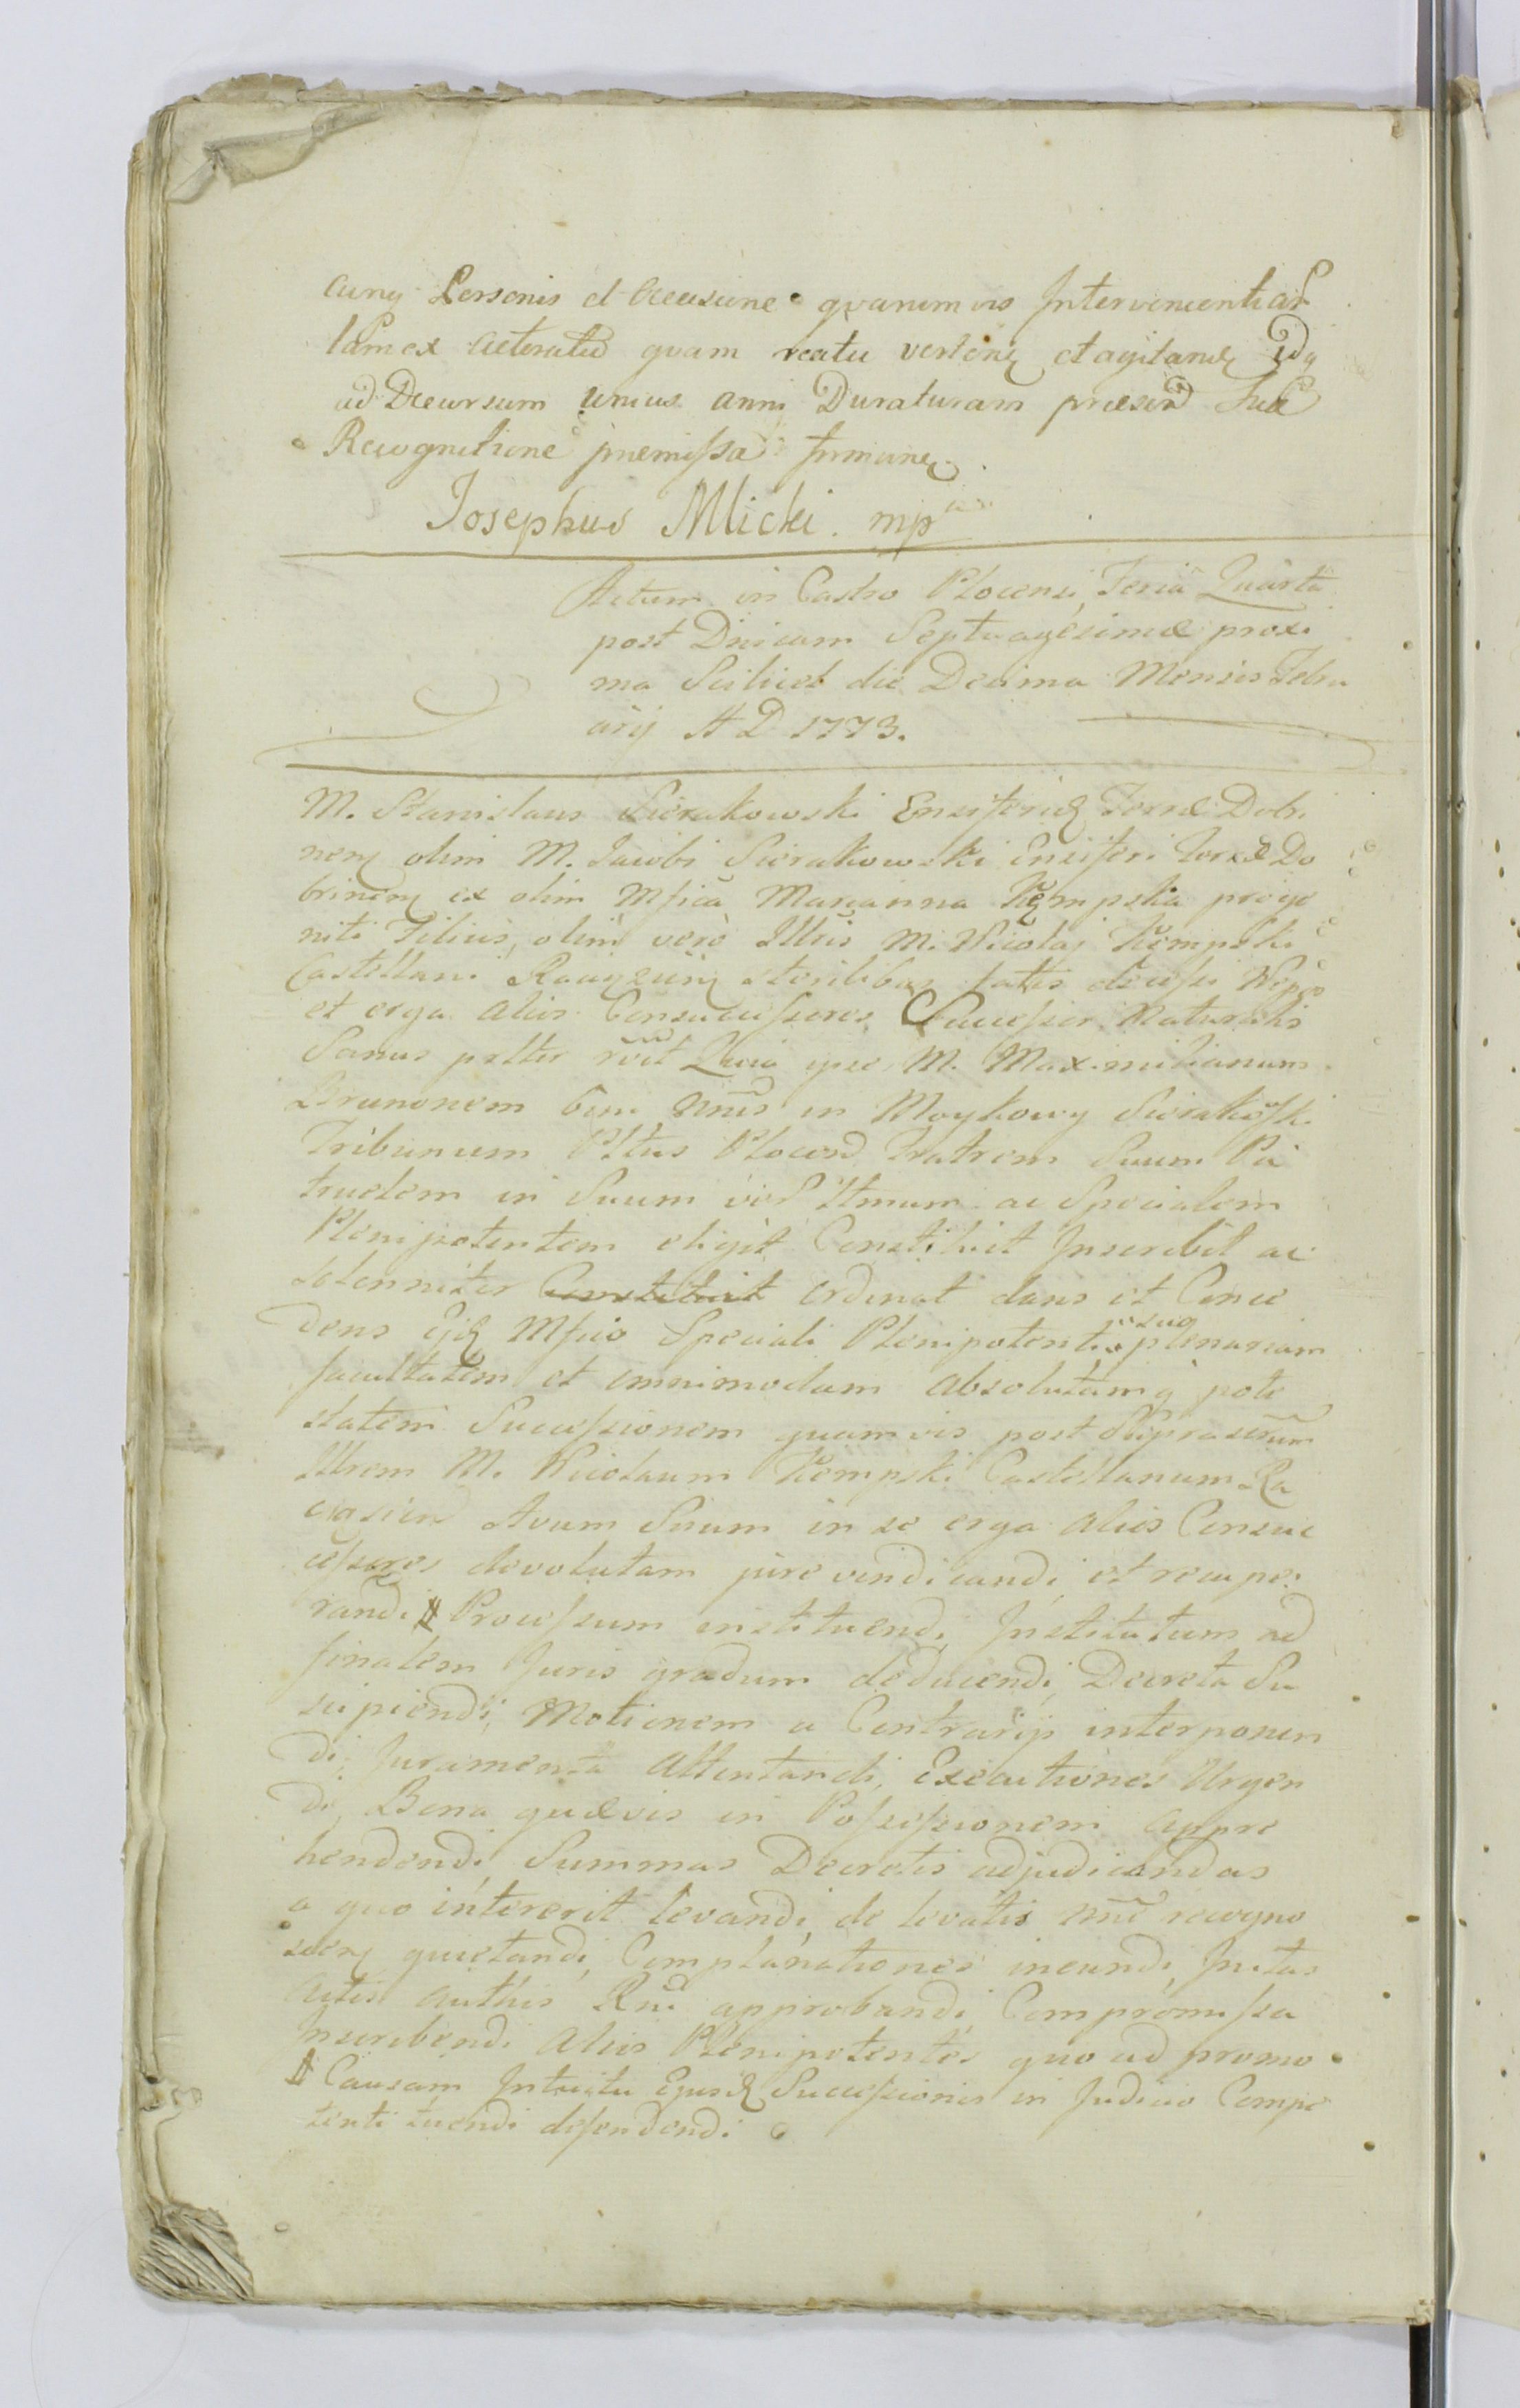 cunq Personis et occasione quanimvis Intervenientia
tam ex actoratu quam reatu verten et agitan Idq
ad Decursum unius anni Duraturam præsen Suæ
Recognitione præmissa
Josephus Mlicki mp
Actum in Castro Plocensi Feria Quarta
post Dnicam Septuagesimæ proxi
ma Scilicet die Decima Mensis Febru
arij A D 1773.
M. Stanislaus Sierakowski Ensiferid Terræ Dobri
nen olim M. Jacobi Sierakowski Ensiferi Terræ Do
brinen ex olim Mfica Marianna Kępmska proge
niti Filius, olim vero Illris M. Nicolaj Kempski
Castellani sterilibus fatis decessi Nepos
et erga alios Consuccessores Successor Naturalis
Sanus pstter Quia ipse M. Maximilianum
Brunonem in Moykowy Sierakoski
Tribunum Pltus Plocen Fratrem Suum Pa
truelem in Suum ver ltmum ac Specialem
Plenipotentem eligit Constituit Inscribit ac
solenniter Constituit ordinat dans et Conce
dens Mfico Speciali Plenipotenti suo plenariam
facultatem et omnimodam absolutamq pote
statem Successionem quamvis post Suprascrum
Illrem M. Nicolaum Kempski Castellanum Ra
ciązien Avum Suum in se erga alios Consuc
cessores devolutam jure vindicandi et recupe
randi # Processum instituendi, Institutum ad
finalem Juris gradum deducendi, Decreta Su
scipiendi, Motionem a Contrarijs interponen
di, Juramenta attentandi, Executiones Urgen
di Bona quævis in Possessionem appre
hendendi Summas Decretis adjudicandas
a quo intererit levandi de levatis recogno
scen quietandi, Complanationes ineundi, Initas
actis authis Rni approbandi Compromissa
Inscribendi alios Plenipotentes quo ad promo
# Causam Intuitu Successionis in Judicio Compe
tenti tuendi defendendi